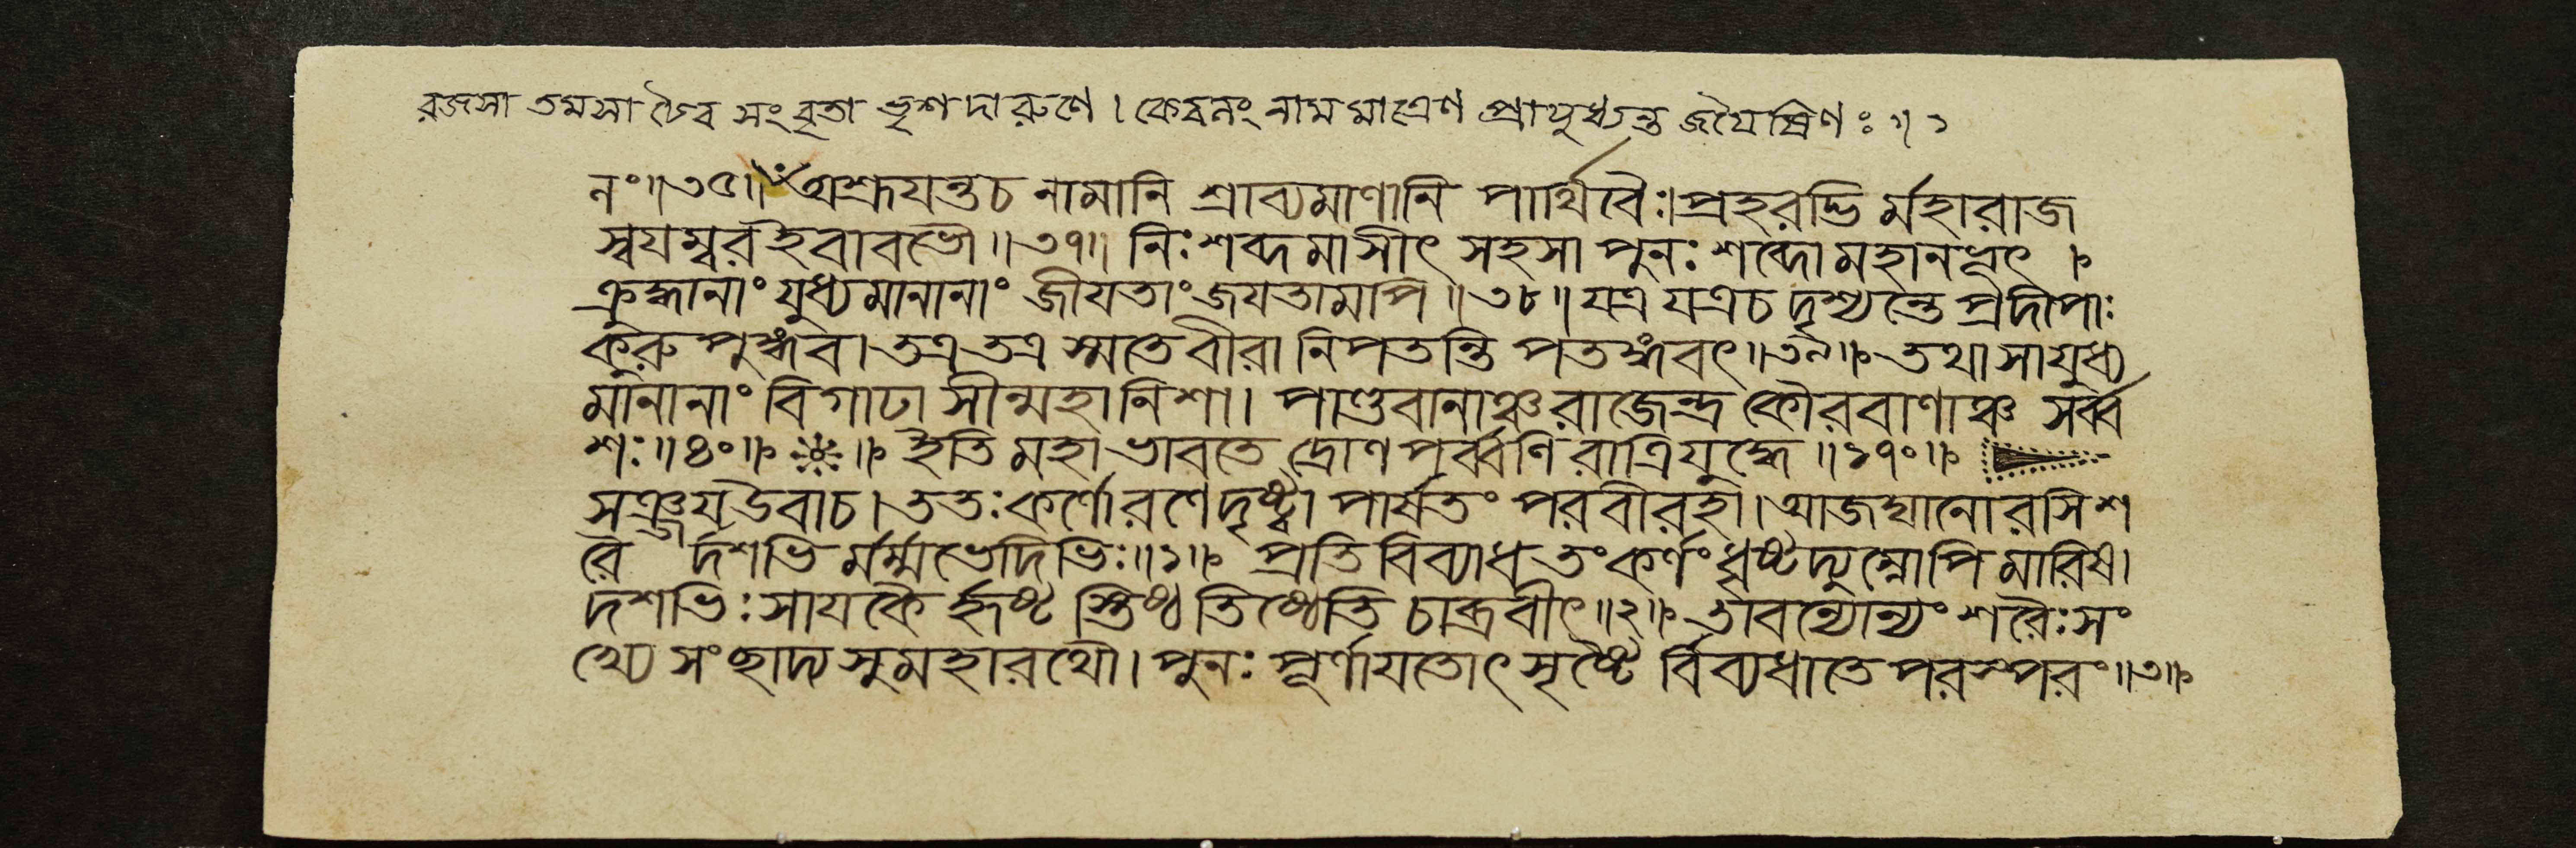 রজসা তমসা চৈব সংবৃতা ভৃশদারুণে। কেবলং নামমাত্রেণ প্রাযুধ্যন্ত জযৈষিণঃ॥১
নঃ॥৩৫॥ অশ্রূযন্তচ নামানি শ্রাব্যমাণানি পার্থিবৈঃ।প্রহরদ্ভি র্মহারাজ
স্বযম্বর ইবাবভৌ॥৩৭॥ নিঃশব্দমাসীৎ সহসা পুনঃ শব্দো মহানভূৎ।
ক্রুদ্ধানাং যুধ্যমানানাং জীযতাং জযতামপি॥৩৮॥যত্র যত্রচ দৃশ্যন্তে প্রদীপাঃ
কুরুপুঙ্গব।তত্র তত্র স্মতে বীরা নিপতন্তি পতঙ্গবৎ॥৩৯॥ তথা সাযুধ্য
মানানাং বিগাঢাসীন্মহানিশা। পাণ্ডবানাঞ্চ রাজেন্দ্র কৌরবাণাঞ্চ সর্ব্ব
শঃ॥৪০॥ ॥ ইতি মহাভাবতে দ্রোণপর্ব্বণি রাত্রিযুদ্ধে॥১৭০॥
সঞ্জযউবাচ।ততঃ কর্ণোরণে দৃষ্ট্বা পার্ষতং পরবীরহা।আজঘানোরসি শ
রৈ র্দশভি র্মর্ম্মভেদিভিঃ॥১॥ প্রতিবিব্যাধ তং কর্ণং ধৃষ্টদ্যুম্নোপি মারিষ।
দশভিঃ সাযকৈ র্হৃষ্ট স্তিষ্ঠ তিষ্ঠেতি চাব্রবীৎ॥২॥ তাবন্যোন্যং শরৈঃ সং
খ্যে সংছাদ্য সুমহারথৌ। পুনঃ পূর্ণাযতোৎসৃষ্টৈ র্বিব্যধাতে পরস্পরং॥৩॥